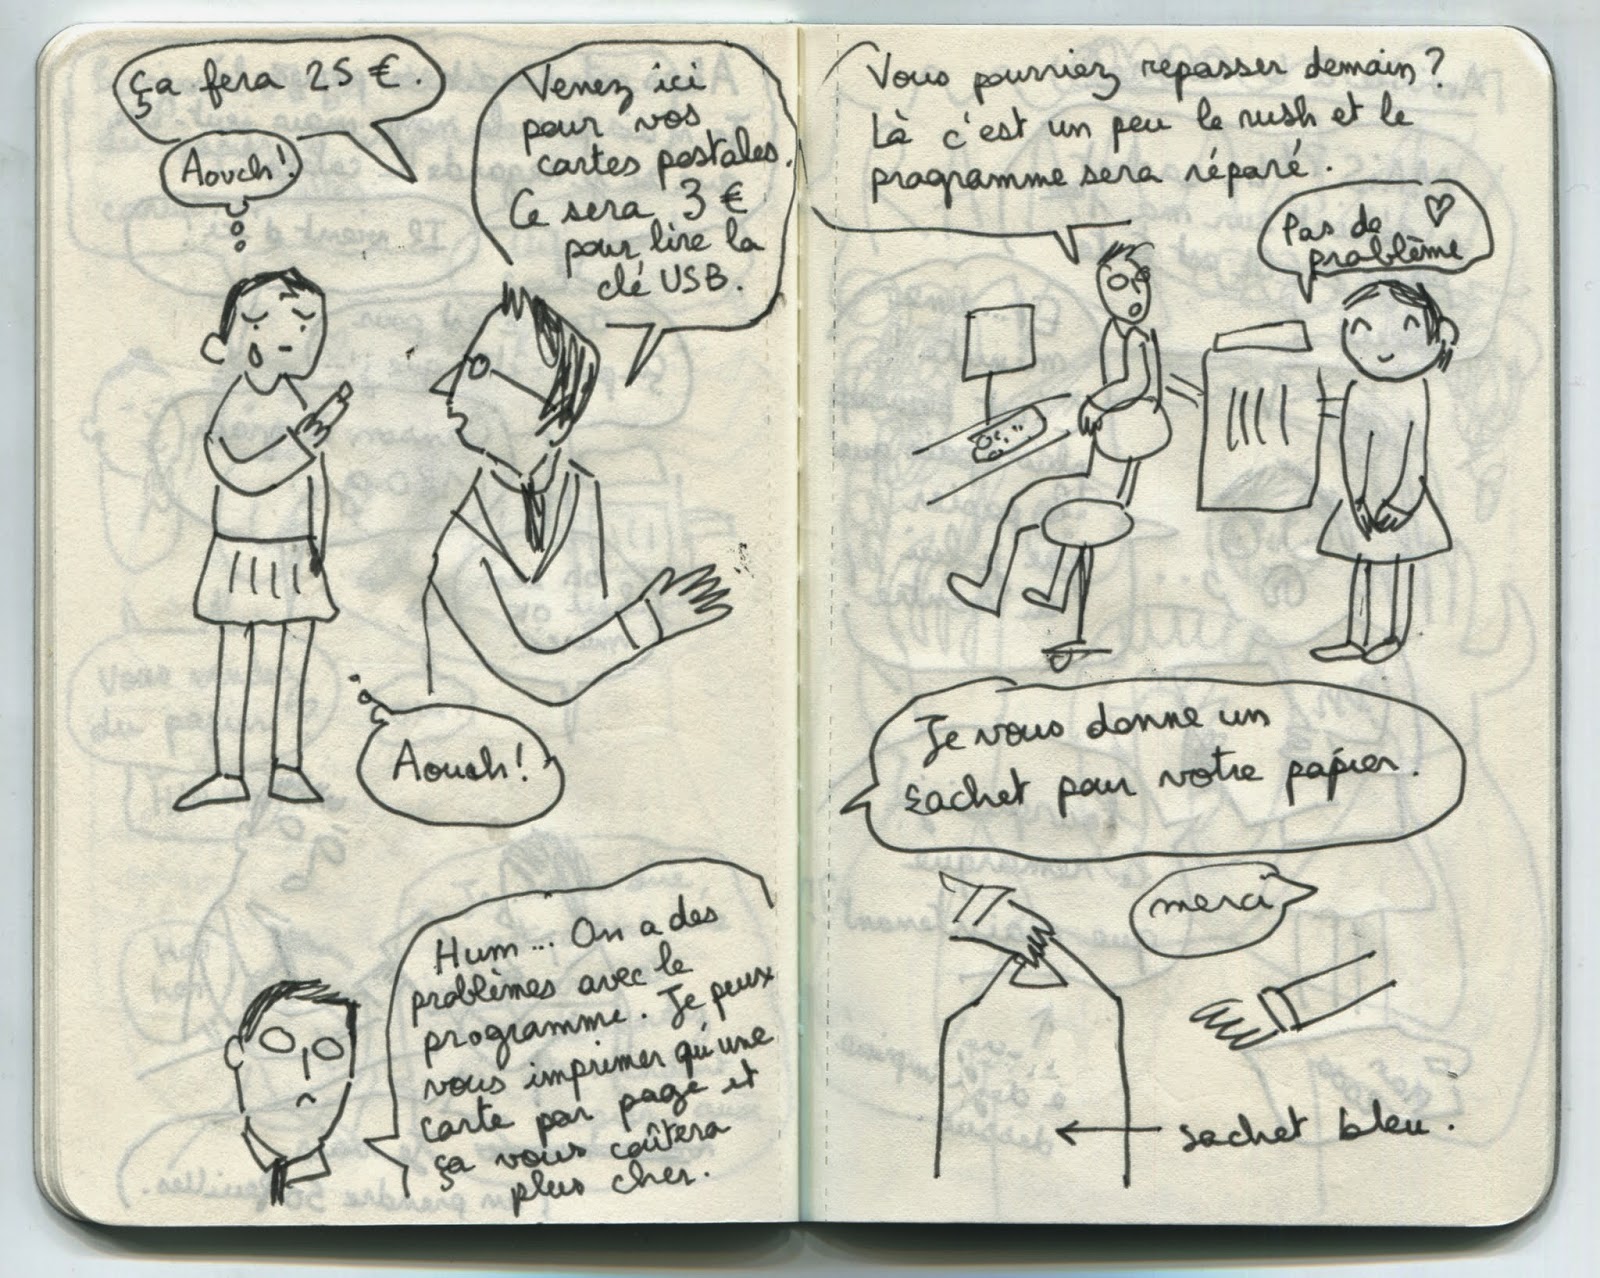 ça fera 25 €.
Aouch!
Venez ici
pour vos
cartes postales.
Ce sera 3 €
pour lire la
clé USB.
Aouch!
Hum... On a des
problèmes avec le
programme. Je peux
vous imprimer qu'une
carte par page et
ça vous coûtera
plus cher.
Vous pourriez repasser demain?
Là c'est un peu le rush et le
programme sera réparé.
Pas de
problème
Je vous donne un
sachet pour votre papier.
merci
sachet bleu.